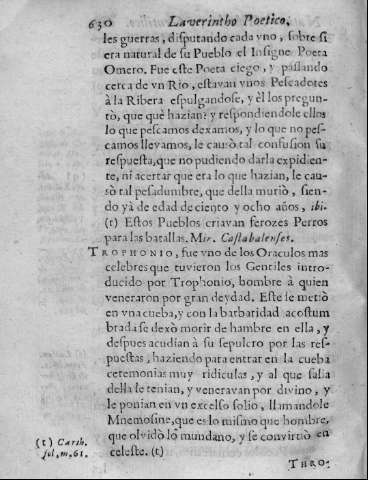 630 Laverintho Poetico.
les guerras, disputando cada vno, sobre si
era natural de su Pueblo el Insigne Poeta
Omero. Fue este Poeta ciego, y passando
cerca de vn Rio, estavan vnos Pescadores
à la Ribera espulgandose, y èl los pregun-
tò, que què hazian? y respondiendole ellos
lo que pescamos dexamos, y lo que no pes-
camos llevamos, le causò tal confusion su
respuesta, que no pudiendo darla expidien-
te, ni acertar que era lo que hazian, le cau-
sò tal pesadumbre, que della muriò, sien-
do yà de edad de ciento y ocho años, ibi.
(t) Estos Pueblos criavan ferozes Perros
para las batallas. Mir. Castabalenses.
TROPHONIO, fue vno de los Oraculos mas
celebres que tuvieron los Gentiles intro-
ducido por Trophonio, hombre à quien
veneraron por gran deydad. Este le metiò
en vna cueba, y con la barbaridad acostum
brada se dexò morir de hambre en ella, y
despues acudian à su sepulcro por las res-
puestas, haziendo para entrar en la cueba
ceremonias muy ridiculas, y al que salia
della le tenian, y veneravan por divino, y
le ponian en vn excelso solio, llamandole
Mnemosine, que es lo mismo que hombre,
que olvidò lo mundano, y se convirtiò en
celeste. (t)
(t) Carth.
fol. m. 61.
THRO-